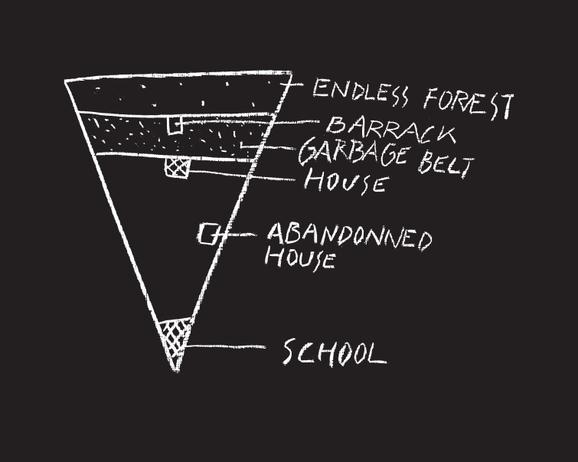 ENDLESS FOREST
BARRACK
GARBAGE BELT
HOUSE
ABANDONNED
HOUSE
SCHOOL